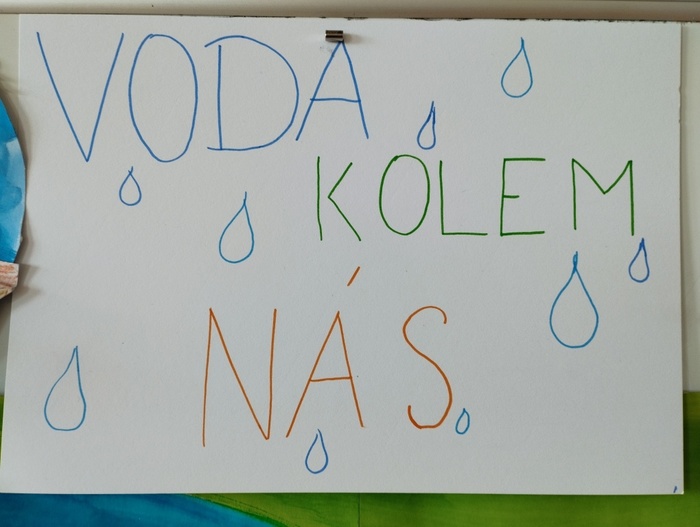 VODA
KOLEM
NÁS